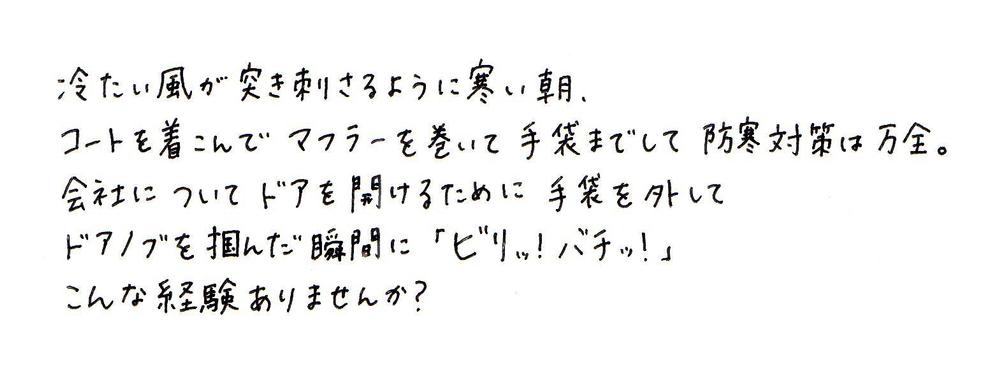 冷たい風が突き刺さるように寒い朝、
コートを着こんで マフラーを巻いて 手袋までして 防寒対策は万全。
会社に ついて ドアを開けるために 手袋を外して
ドアノブを掴んだ瞬間に「ビリッ!バチッ!」
こんな経験ありませんか?